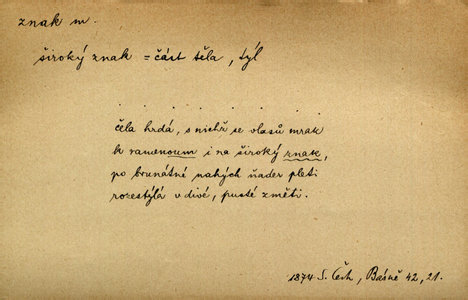 znak m.
široký znak = část těla, týl
. . . . . . .
čela hrdá, s nichž se vlasů mrak
k ramenoum i na široký znak,
po brunátné nahých ňader pleti
rozestýlá v divé, pusté změti.
1874 S. Čech, Básně 42, 21.